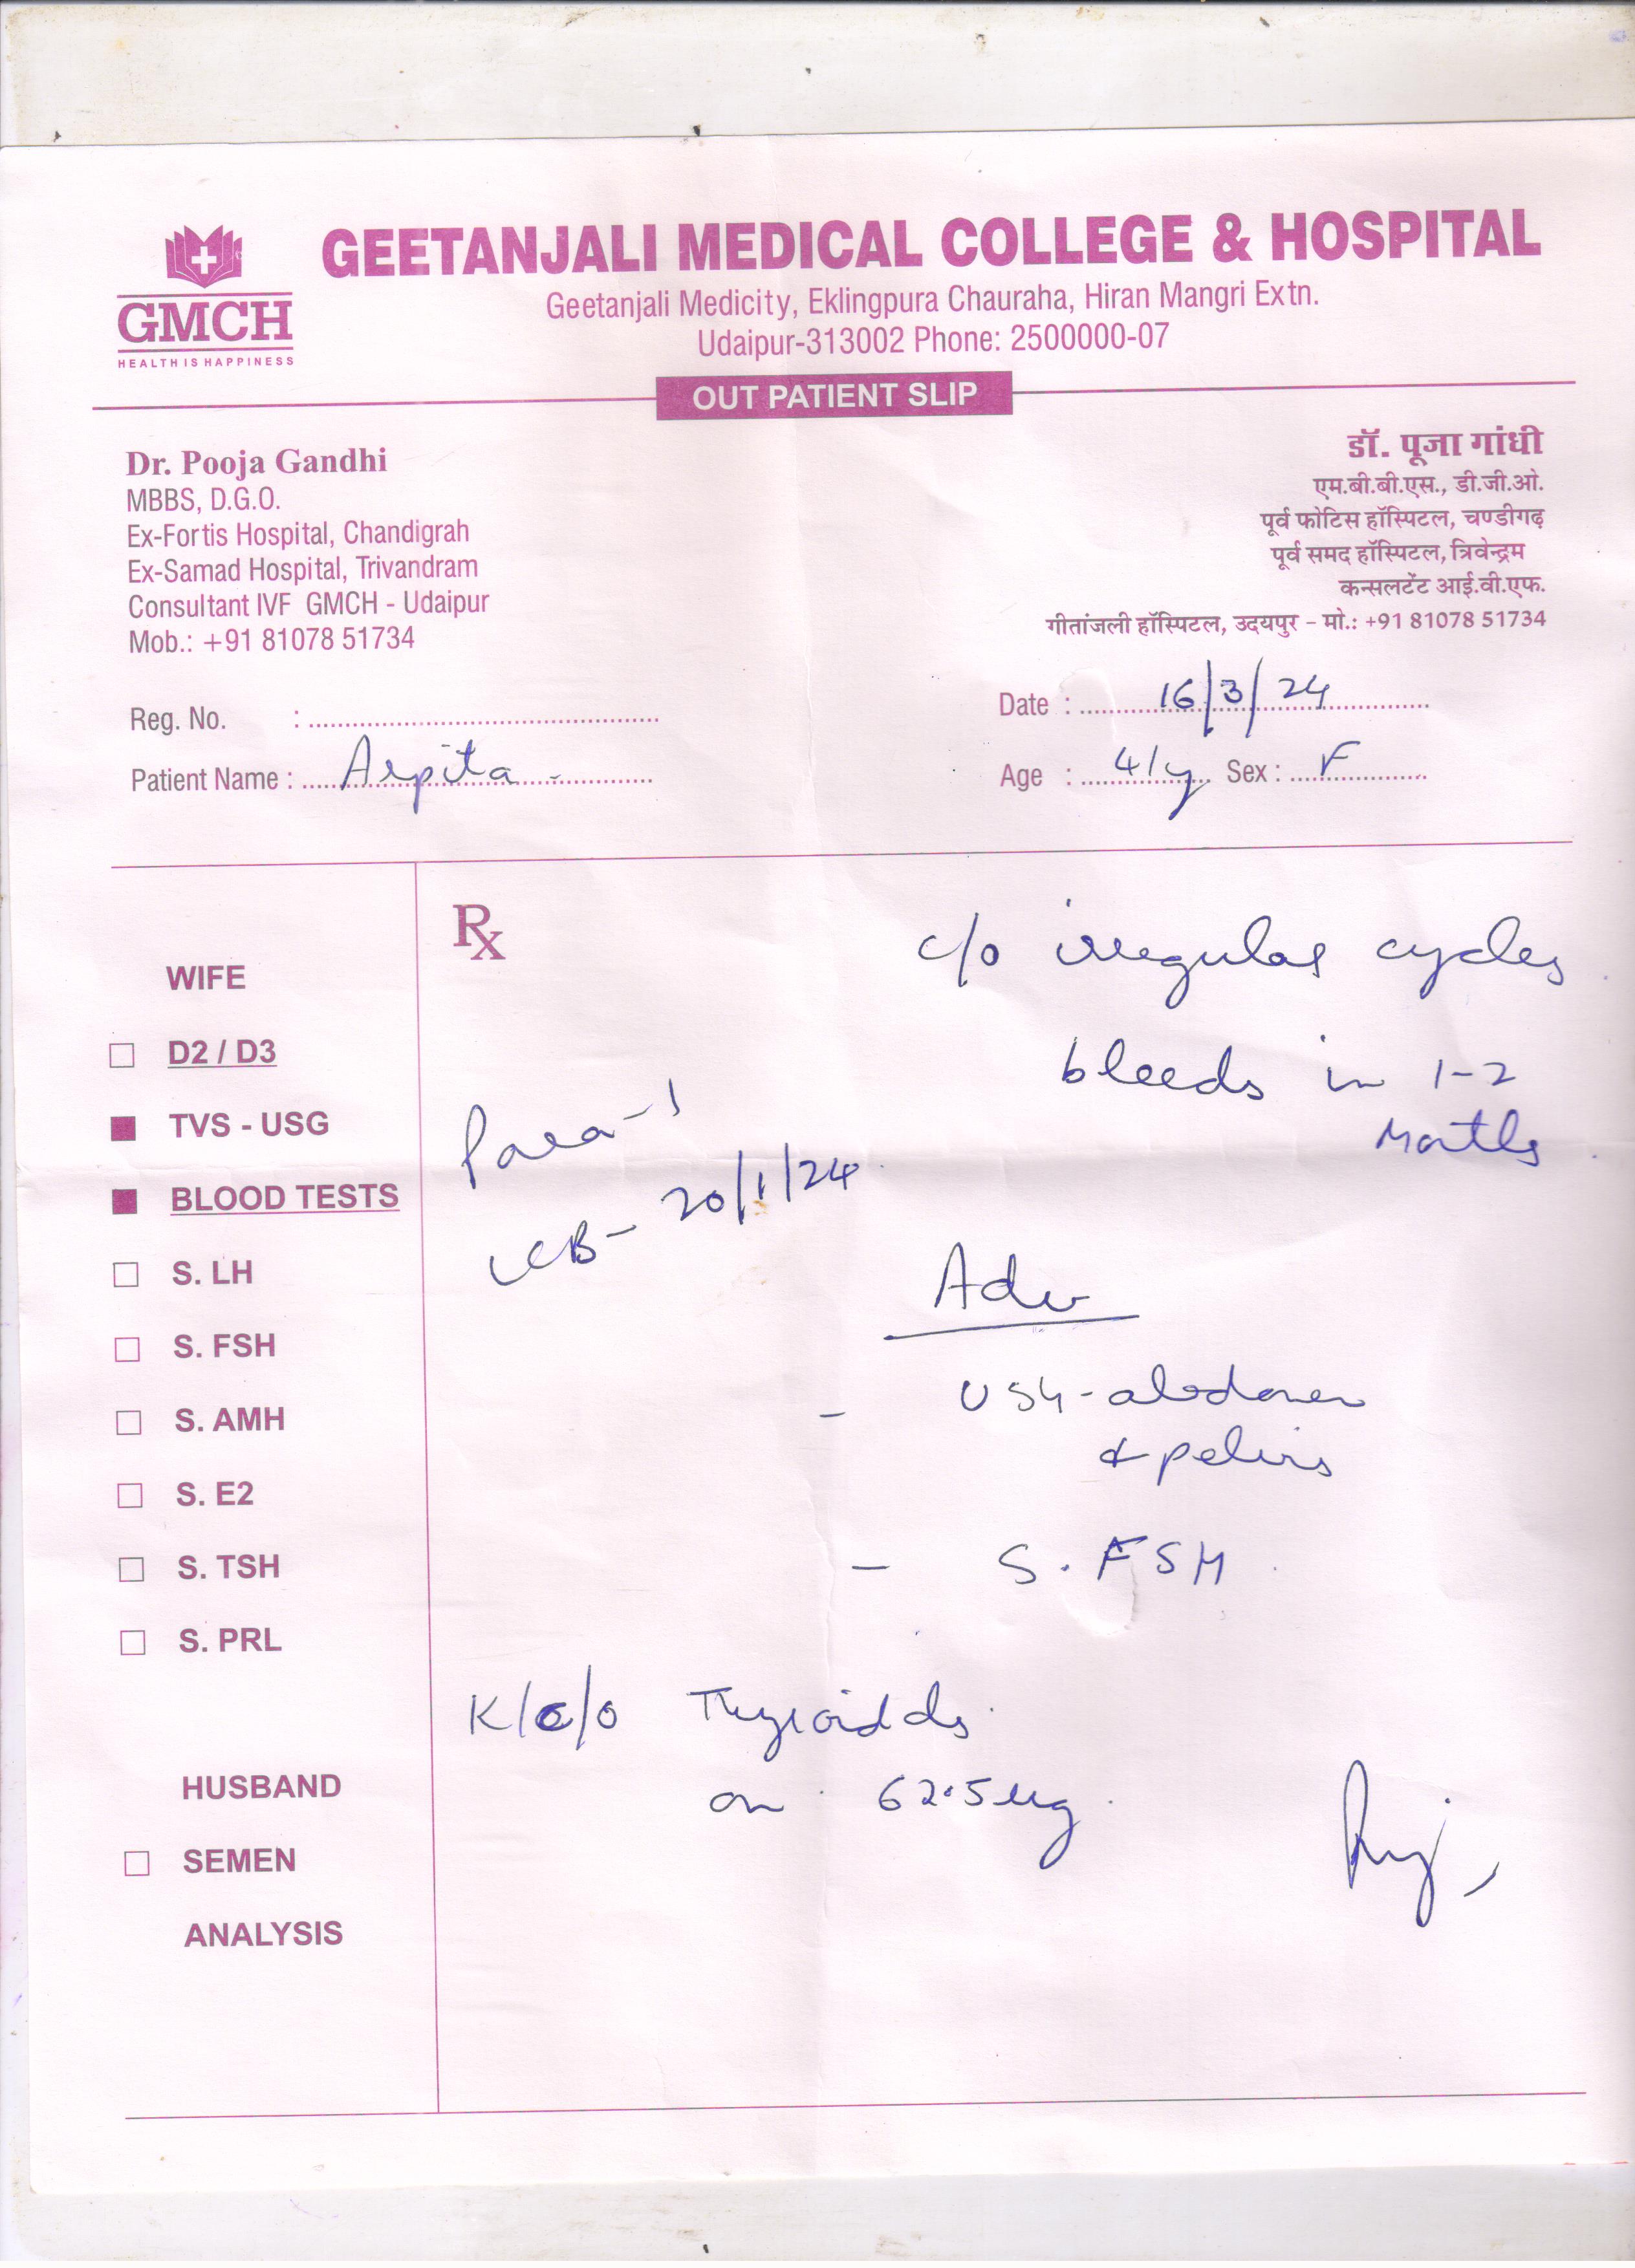 GMCH
HEALTH IS HAPPINESS
GEETANJALI MEDICAL COLLEGE & HOSPITAL
Geetanjali Medicity, Eklingpura Chauraha, Hiran Mangri Extn.
Udaipur-313002 Phone: 2500000-07
OUT PATIENT SLIP
Dr. Pooja Gandhi
MBBS, D.G.O.
Ex-Fortis Hospital, Chandigrah
Ex-Samad Hospital, Trivandram
Consultant IVF GMCH - Udaipur
Mob.: +91 81078 51734
डॉ. पूजा गांधी
एम.बी.बी.एस., डी.जी.ओ.
पूर्व फोटिस हॉस्पिटल, चण्डीगढ़
पूर्व समद हॉस्पिटल, त्रिवेन्द्रम
कन्सलटेंट आई.वी.एफ.
गीतांजली हॉस्पिटल, उदयपुर - मो.: +91 81078 51734
Reg. No. :
Date : 16/3/24
Patient Name : Arpita
Age : 41y Sex : F
Rx
WIFE
D2 / D3
TVS - USG
BLOOD TESTS
S. LH
S. FSH
S. AMH
S. E2
S. TSH
S. PRL
HUSBAND
SEMEN
ANALYSIS
c/o irregular cycles
bleeds in 1-2
Months
Para-1
LCB- 20/1/24
Adv
- USG-abdomen
& pelvis
- S. FSH
K/c/o Thyroid ds
on 62.5 ug